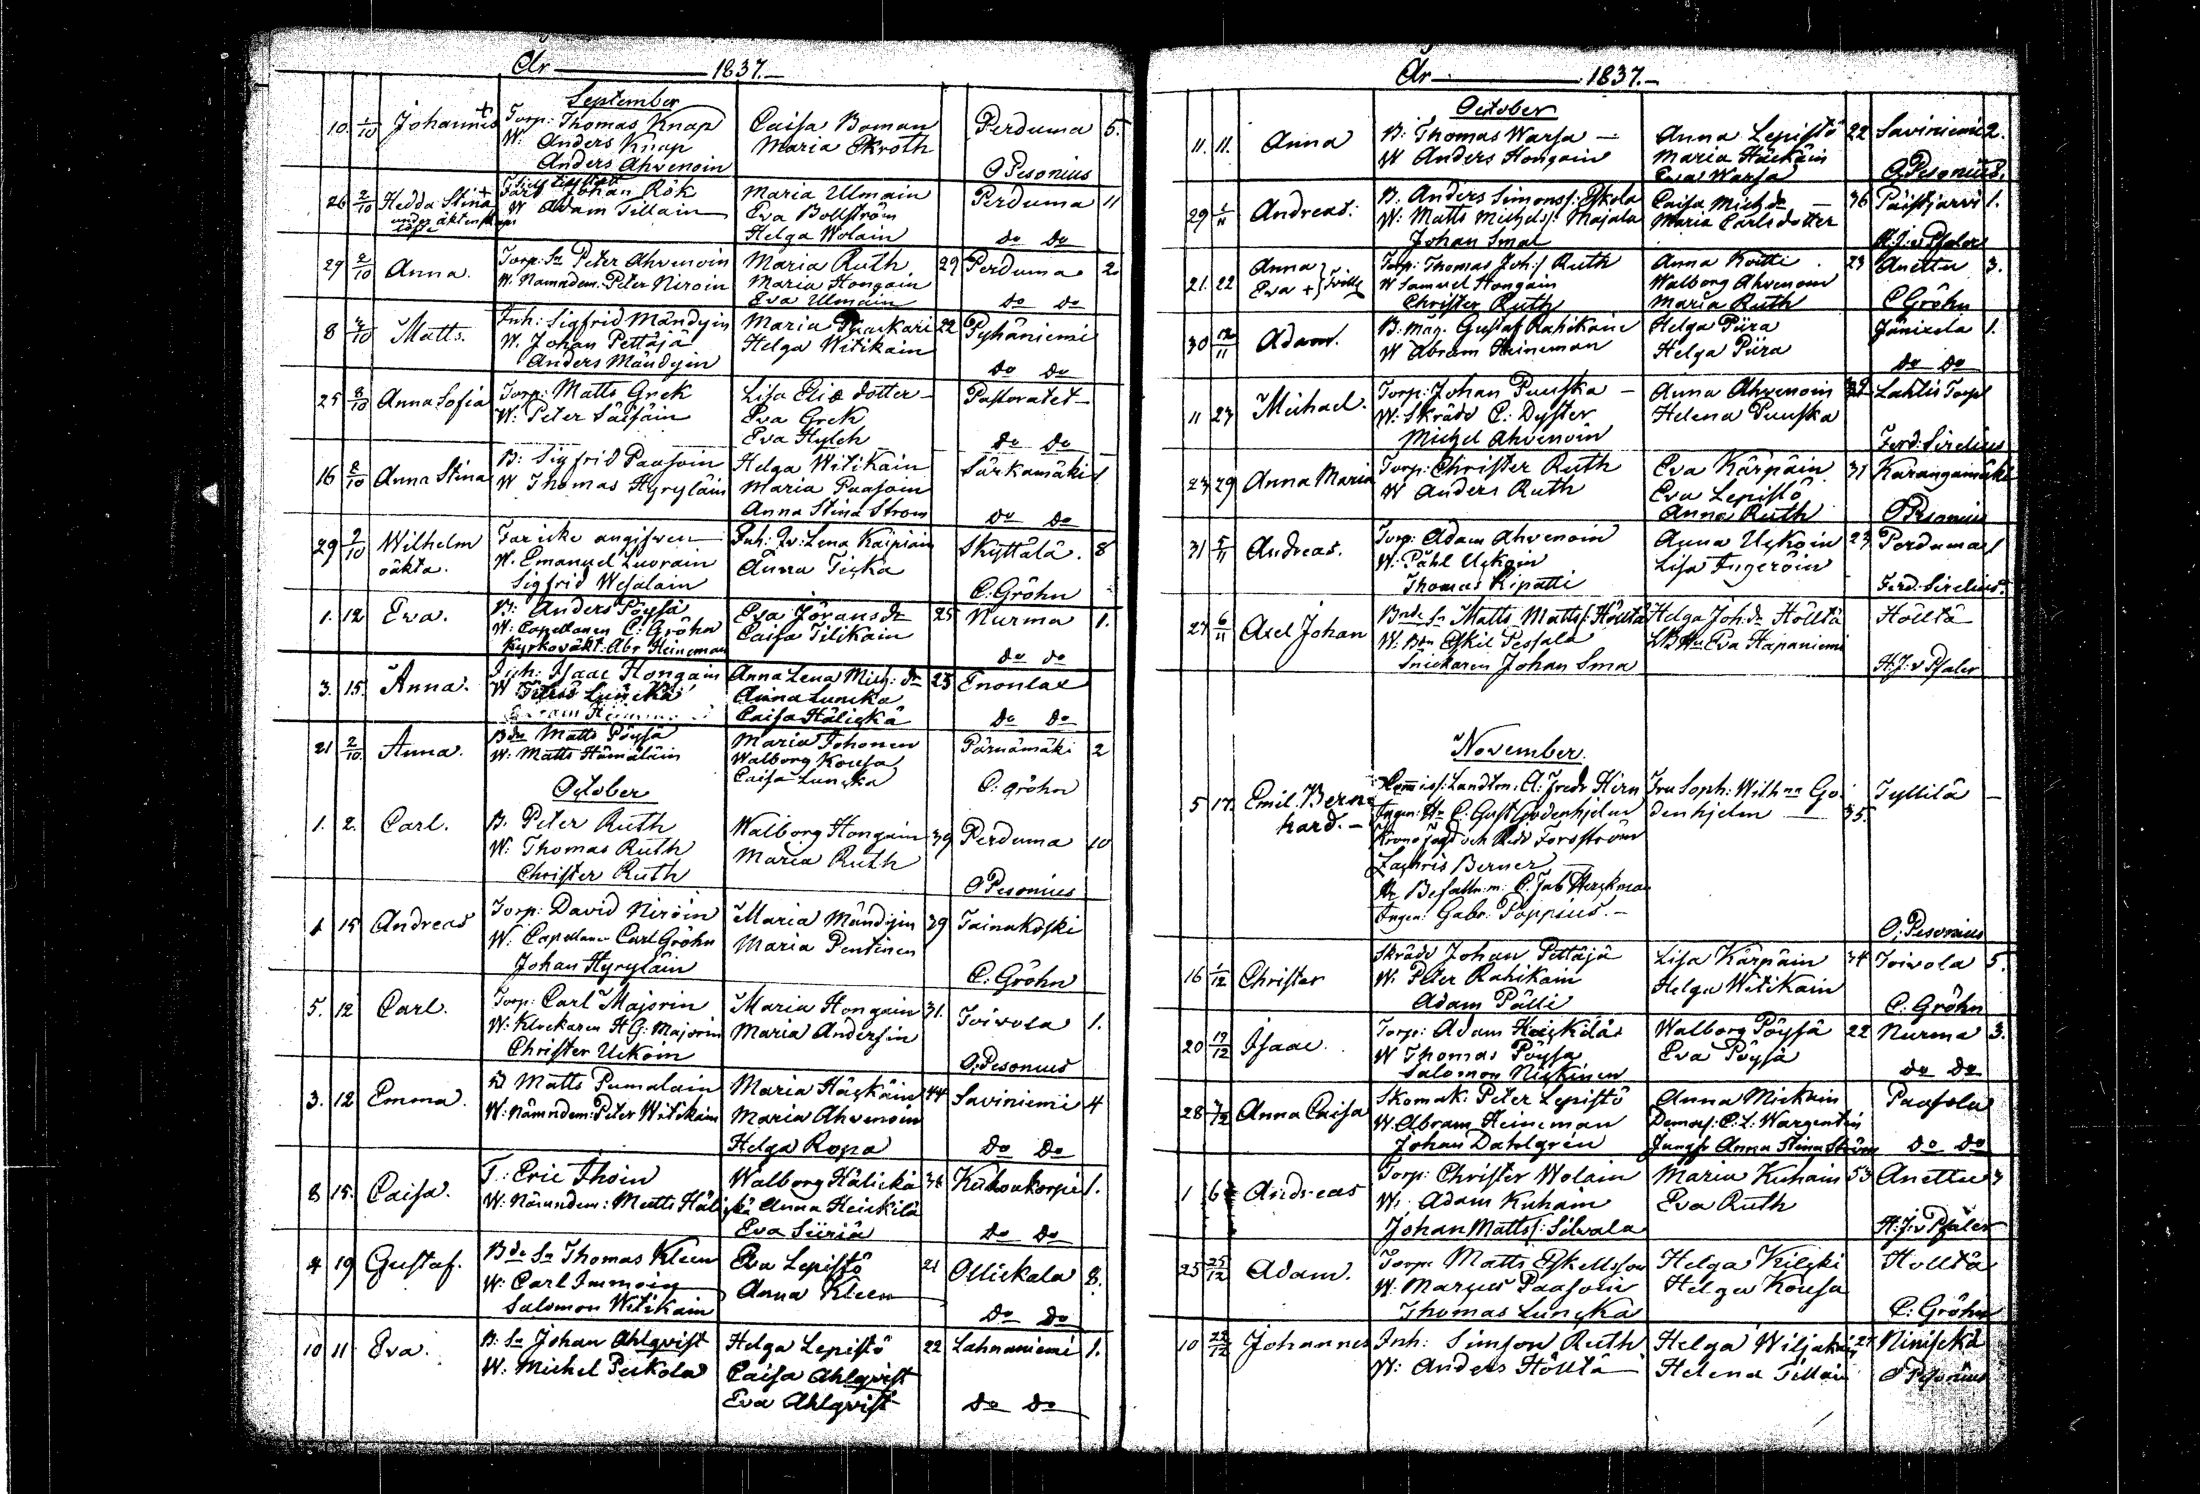 År 1837.
September
10. 1/10 Johannes + Torp: Thomas Knap Caisa Boman Perduma 5.
W: Anders Knap Maria Skroth
Anders Ahvenoin O Pesonius
26 2/10 Hedda Stina + Johan Rök Maria Ulmain Perduma 11
under äktensk. W Adam Tillain Eva Bollström
löfte Helga Wolain do do
29 2/10 Anna. Torp: Sn Peter Ahvenoin Maria Ruth 29 Perduma 2
W. Namndem. Peter Niroin Maria Hongain
Eva Ulmain do do
8 4/10 Matts. Inh: Sigfrid Mändyin Maria 22 Pyhäniemi
W. Johan Pettäjä Helga Witikain
Anders Mändyin do do
25 8/10 Anna Sofia Torp: Matts Grek Lisa Eliæ dotter Pastoratet
W: Peter Säisäin Eva Grek
Eva Hylch do do
16 8/10 Anna Stina B: Sigfrid Paasoin Helga Witikain Särkamäki 1
W Thomas Hyryläin Maria Paasoin
Anna Stina Strom do do
29 9/10 Wilhelm Far icke angifven Inh: Lena Kärpiäin Skyttälä. 8
oäkta. W. Emanuel Luorain Anna Tiska
Sigfrid Wesalain C: Gröhn
1. 12 Eva. B: Anders Pöysä Eva Jöransdr 25 Nurma 1.
W: Capellanen C: Gröhn Caisa Tilikain
Kyrkoväkt: Abr Heineman do do
3. 15. Anna. Inh: Isaac Hongain Anna Lena Mich: dr 23 Enonlax
W Anna Luncka
Caisa Hälickä do do
21 2/10. Anna. Bdn Matts Pöysä Maria Tohonen Pärnämäki 2
W: Matts Hämäläin Walborg Kousa
Caisa Luncka C: Gröhn
October
1. 2. Carl. B. Peter Ruth Walborg Hongain 39 Perduma 10
W: Thomas Ruth Maria Ruth
Christer Ruth O Pesonius
1 15 Andreas Torp: David Niroin Maria Mändyin 39 Tainakoski
W: Capellanen Carl Gröhn Maria Pentinen
Johan Hyryläin C: Gröhn
5. 12 Carl. Torp: Carl Majorin Maria Hongain 31. Toivola 1.
W: Klockaren H G: Majorin Maria Andersin
Christer Uckoin O: Pesonius
3. 12 Emma. Matts Pumalain Maria Häckäin 44 Saviniemi 4
W: Nämndem: Peter Witikain Maria Ahvenoin
Helga Ropa do do
8 15. Caisa. T: Eric Ihoin Walborg Hälickä 38 Kukonkorpi 1.
W: Nämndem: Matts Hälickä Anna Heickilä
Eva Siiriä do do
4 19 Gustaf. Bde Sn Thomas Kleen Eva Lepistö 21 Ollickala 8.
W: Carl Immoin Anna Kleen
Salomon Witikain do do
10 11 Eva. B: Sn Johan Ahlqvist Helga Lepistö 22 Lahnaniemi 1.
W: Michel Peckola Caisa Ahlqvist
Eva Ahlqvist do do
År 1837.
October
11. 11. Anna B: Thomas Warsa Anna Lepistö 22 Saviniemi 2.
W Anders Hongain Maria Häckäin
Eva Warsa O Pesonius
29 1/11 Andreas. B. Anders Simonss: Eskola Caisa Michdr 36 Päistjärvi 1.
W: Matts Michels: Majala Maria Carlsdotter
Johan Smal H: J: v Pfaler
21. 22 Anna Eva + Tvill: Torp: Thomas Joh:s Ruth Anna Koitti 23 Anettu 3.
W Samuel Hongain Walborg Ahvenoin
Christer Ruth Maria Ruth C Gröhn
30 12/11 Adam. B: Måg. Gustaf Rahikain Helga Piira Jänicela 1.
W Abram Heineman Helga Piira
do do
11 23 Michael. Torp: Johan Puuska Anna Ahvenoin Lahtis Torp
W: Skrädd C: Dyster Helena Puuska
Michel Ahvenoin Ferd: Sirelius
23 29 Anna Maria Torp: Christer Ruth Eva Kärpäin 31 Karangamäki
W Anders Ruth Eva Lepistö
Anna Ruth O Pesonius
31 5/11 Andreas. Torp: Adam Ahvenoin Anna Uckoin 23 Perduma 1
W: Påhl Uckoin Lisa Ingeröin
Thomas Ripatti Ferd: Sirelius.
27 6/11 Axel Johan Bnde Sn Matts Matts: Hölltä Helga Joh: dr Hölltä Hölltä
W: Bdn Eskil Pessala Eva Hapaniemi
Snickaren Johan Sma H: J: v Pfaler
November.
5 17. Emil Bernhard. Commiss: Landtm: A: Fredr Hirn Fru Soph: Wilhna Godenhjelm 35. Tyllilä
Ingen: Hr C: Gust Godenhjelm
Krono fogd och Forsström
Zachris Berner
Hr Befalln: m: C. Jab Herckman
Ingen: Gabr: Poppius. O: Pesonius
16 1/12 Christer Skrädd Johan Pettäjä Lisa Kärpäin 34 Toivola 5.
W. Peter Rahikain Helga Witikain
Adam Pälli C: Gröhn
20 19/12 Isaac. Torp: Adam Heickilä Walborg Pöysä 22 Nurma 3.
W Thomas Pöysä Eva Pöysä
Salomon Nickinen do do
28 Anna Caisa Skomak: Peter Lepistö Anna Mickain Paasola
W. Abram Heineman Demois: C: L: Wargentin
Johan Dahlgren Jungfr Anna Stina Ström do do
1 6 Andreas Torp: Christer Wolain Maria Kuhain 53 Anettu 3
W: Adam Kuhain Eva Ruth
Johan Matts: Silvala H: J: v Pfaler
25 25/12 Adam. Torp: Matts Eskellsson Helga Kilski Hollta
W: Marcus Paasoin Helga Kousa
Thomas Luncka C: Gröhn
10 22/12 Johannes Inh: Simson Ruth Helga Wiljakain 27 Nimiscka
W: Anders Hölltä Helena Tillain O Pesonius